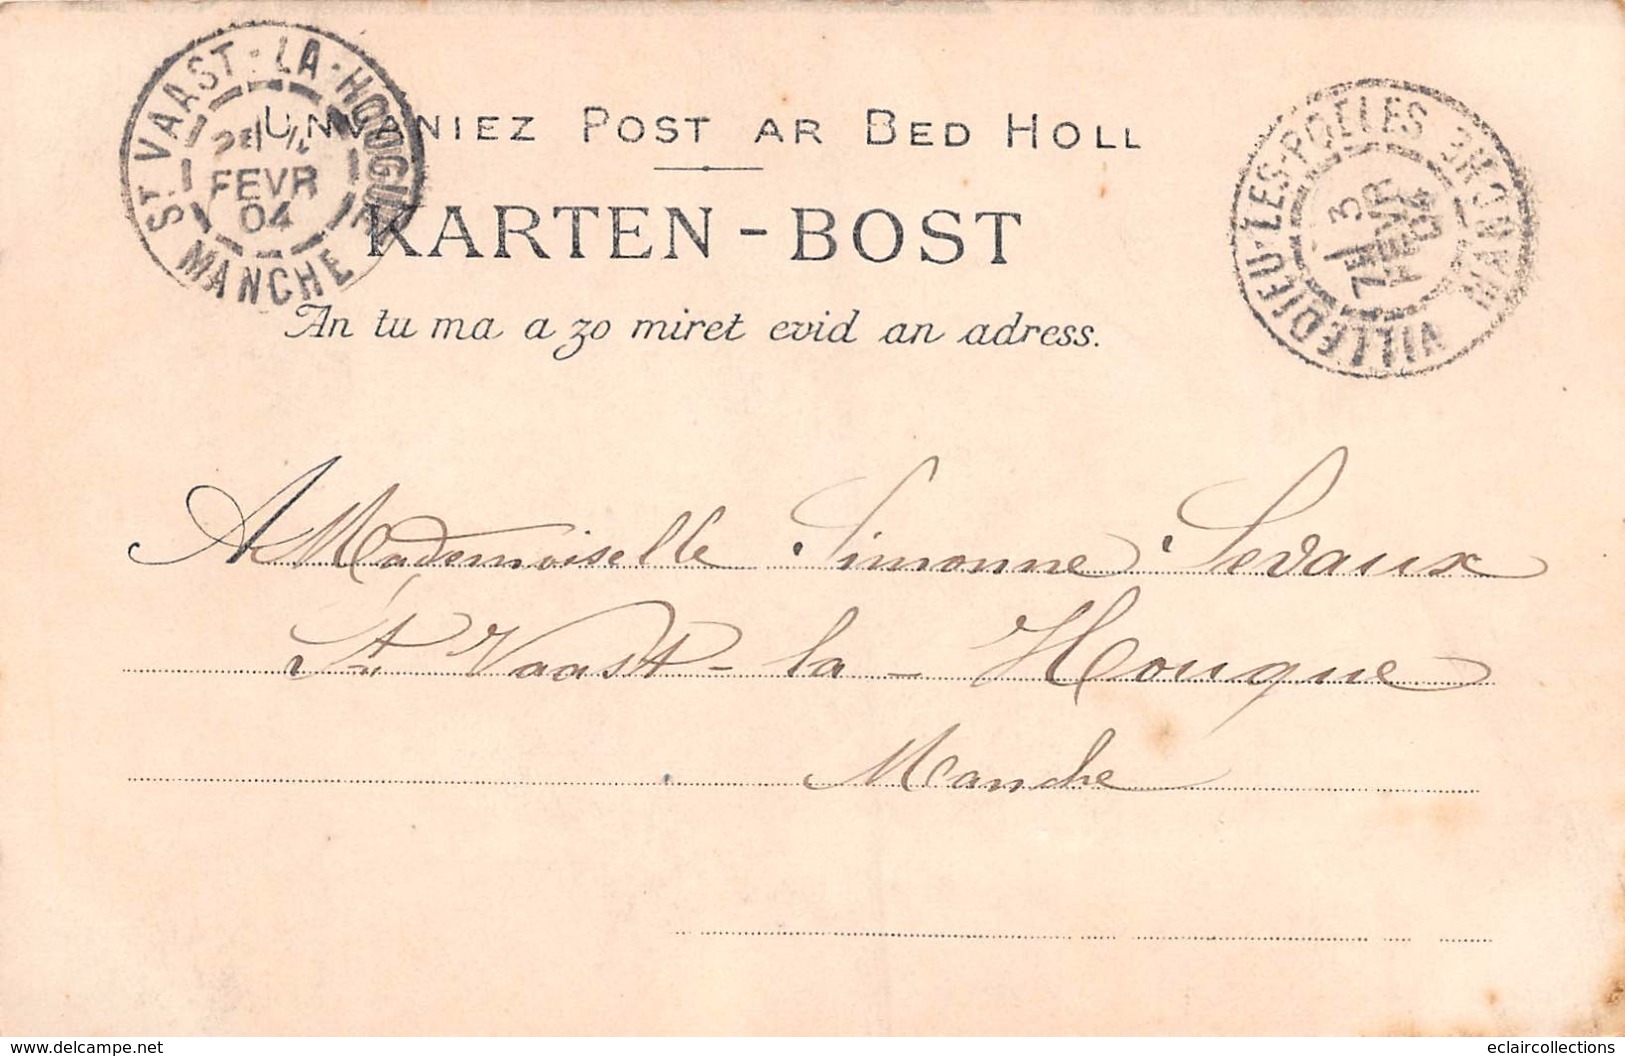 ST VAAST-LA-HOUGUE
FEVR
04
MANCHE
UNVANIEZ POST AR BED HOLL
KARTEN-BOST
An tu ma a zo miret evid an adress.
VILLEDIEU-LES-POELES MANCHE
3
FEVR
04
A Mademoiselle Simonne Sevaux
St Vaast-la-Houque
Manche
delcampe.net
eclaircollections